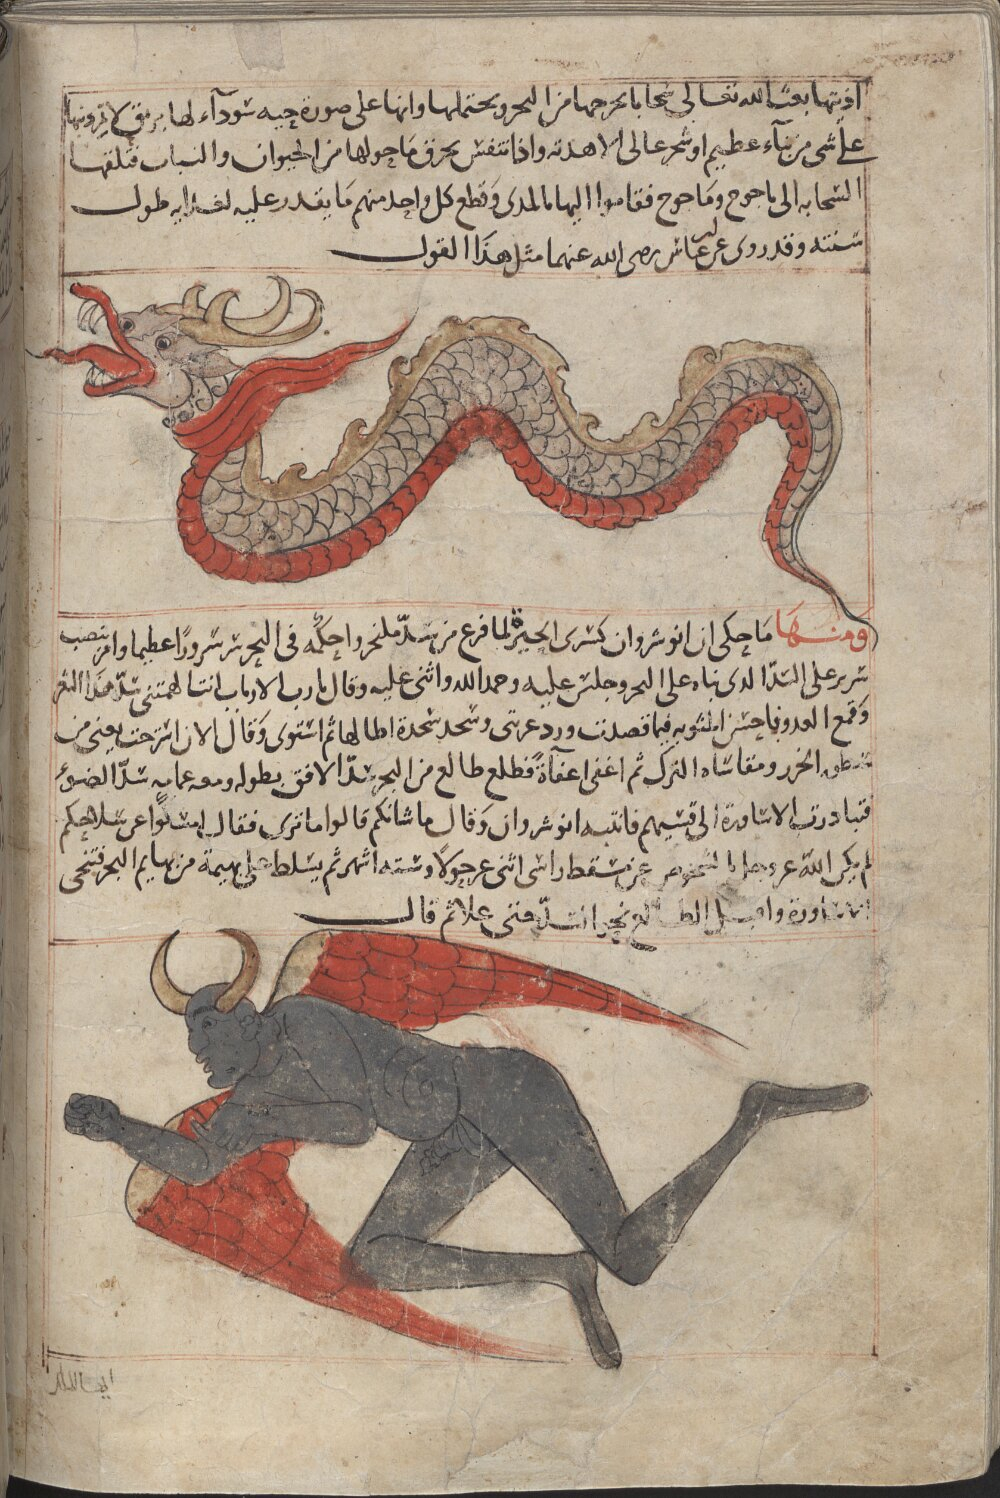 اذيتها بعث الله تعالى سحابا يخرجها من البحر ويحتملها وانها على صورة حية سوداء لها بريق لا يمر ذنبها
على شي من بناء عظيم او شجر عالى الا هدته واذا تنفس يحرق ما حولها من الحيوان والنبات فتلقها
السحابه الى ياجوج وماجوج فقاموا اليها بالمدى وقطع كل واحد منهم ما يقدر عليه لغدايه طول
سنته وقد روى عن ابن عباس رضى الله عنهما مثل هذا القول
ومنها ما حكى ان انوشروان كسرى الخير لما فرغ من سد بلنجر واحكمه فى البحر سر سرورًا عظيما وامر بنصب
سرير على السد الذى بناه على البحر وجلس عليه وحمد الله واثنى عليه وقال يا رب الارباب انت الهمتنى سد هذا الثغر
وقمع العدو فاحسن المثوبه فيما قصدت ورد غربتى وسجد سجدة اطالها ثم استوى وقال الان استرحت يعنى من
سطوه الخزر ومقاساه الترك ثم اغفى اغفاءةً فطلع طالع من البحر سد الافق بطوله ومعه غمامه سد الضوء
فتبادرت الاساورة الى قسيهم فانتبه انوشروان وقال ما شانكم قالوا ما ترى فقال امسكوا عن سلاحكم
لم يكن الله عز وجل عن مسقط راسى اثنى عشر حولًا وسته اشهر ثم يسلط على بهيمة من بهايم البحر فتنحى
الاساورة واقبل الطالع نحو السد حتى علا ثم قال
ايها الملك